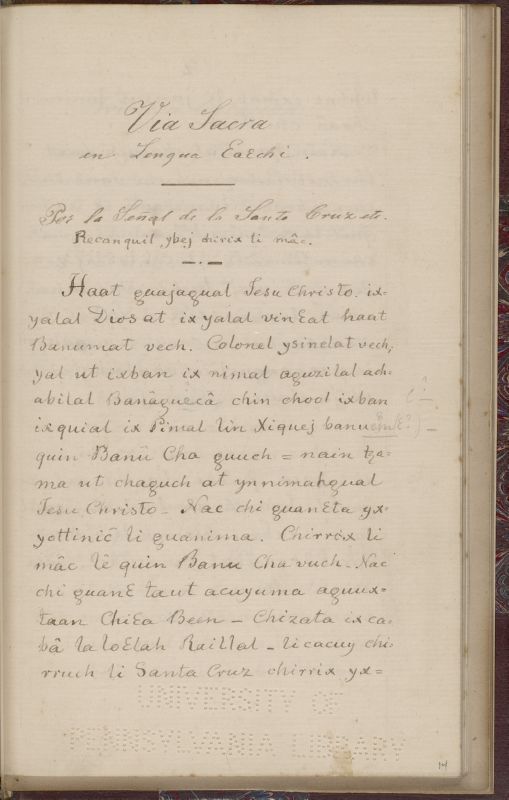 Via Sacra
en Lengua Caechi.
Por la Señal de la Santa Cruz etc.
Recanquil, ybej chirix li mâc.
Haat guajagual Jesu Christo. ix=
yalal Dios at ix yalal vinɛat haat
Banumat vech. Colonel ysinelat vech,
yal ut ixban ix nimal aguzilal ach=
abilal Banâguecâ chin chool ixban
ixquial ix Pimal lin Xiquej
quin Banû Cha guuch = nain tza=
ma ut chaguch at ynnimahgual
Jesu Christo - Nac chi guanɛta yx=
yottinic li guanima. Chirrix li
mâc lê quin Banu Cha vuch - Nac
chi guanɛ taut acuyuma aguux=
taan Chiɛa Been - Chizata ixca=
bâ laloɛlah Raillal - li cacuy chi=
rruch li Santa Cruz chirrix yx=
UNIVERSITY OF
PENNSYLVANIA LIBRARY
14